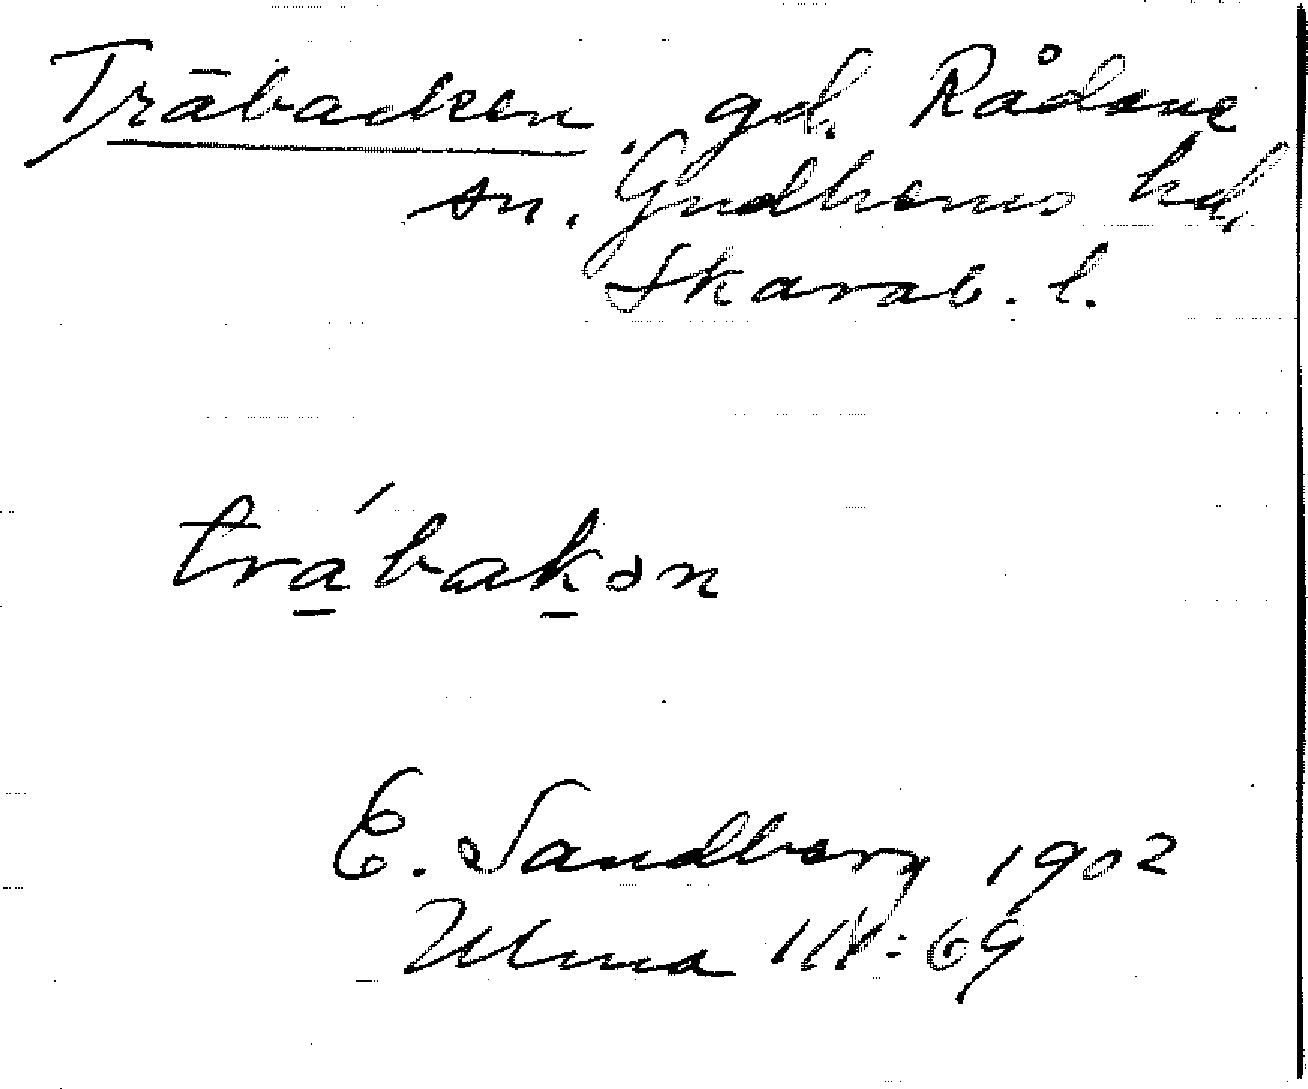 Träbacken gd. Rådene
sn. Gudhems hd,
Skarab. l.
trábakən
E. Sandberg 1902
Ulma 111:69